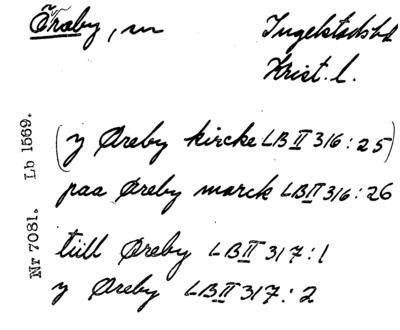 Öraby, sn Ingelstads hd
Krist. l.
(y Øreby kircke LB II 316:25)
paa Øreby marck LB II 316:26
tiill Øreby LB II 317:1
y Øreby LB II 317:2
Nr 7081. Lb 1569.